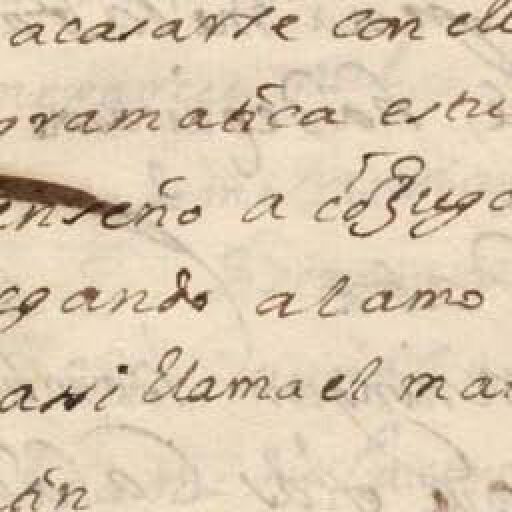 acasarse con ell
gramatica estu
enseño a cōjuga
egando al amo
asi llama el mar
tin